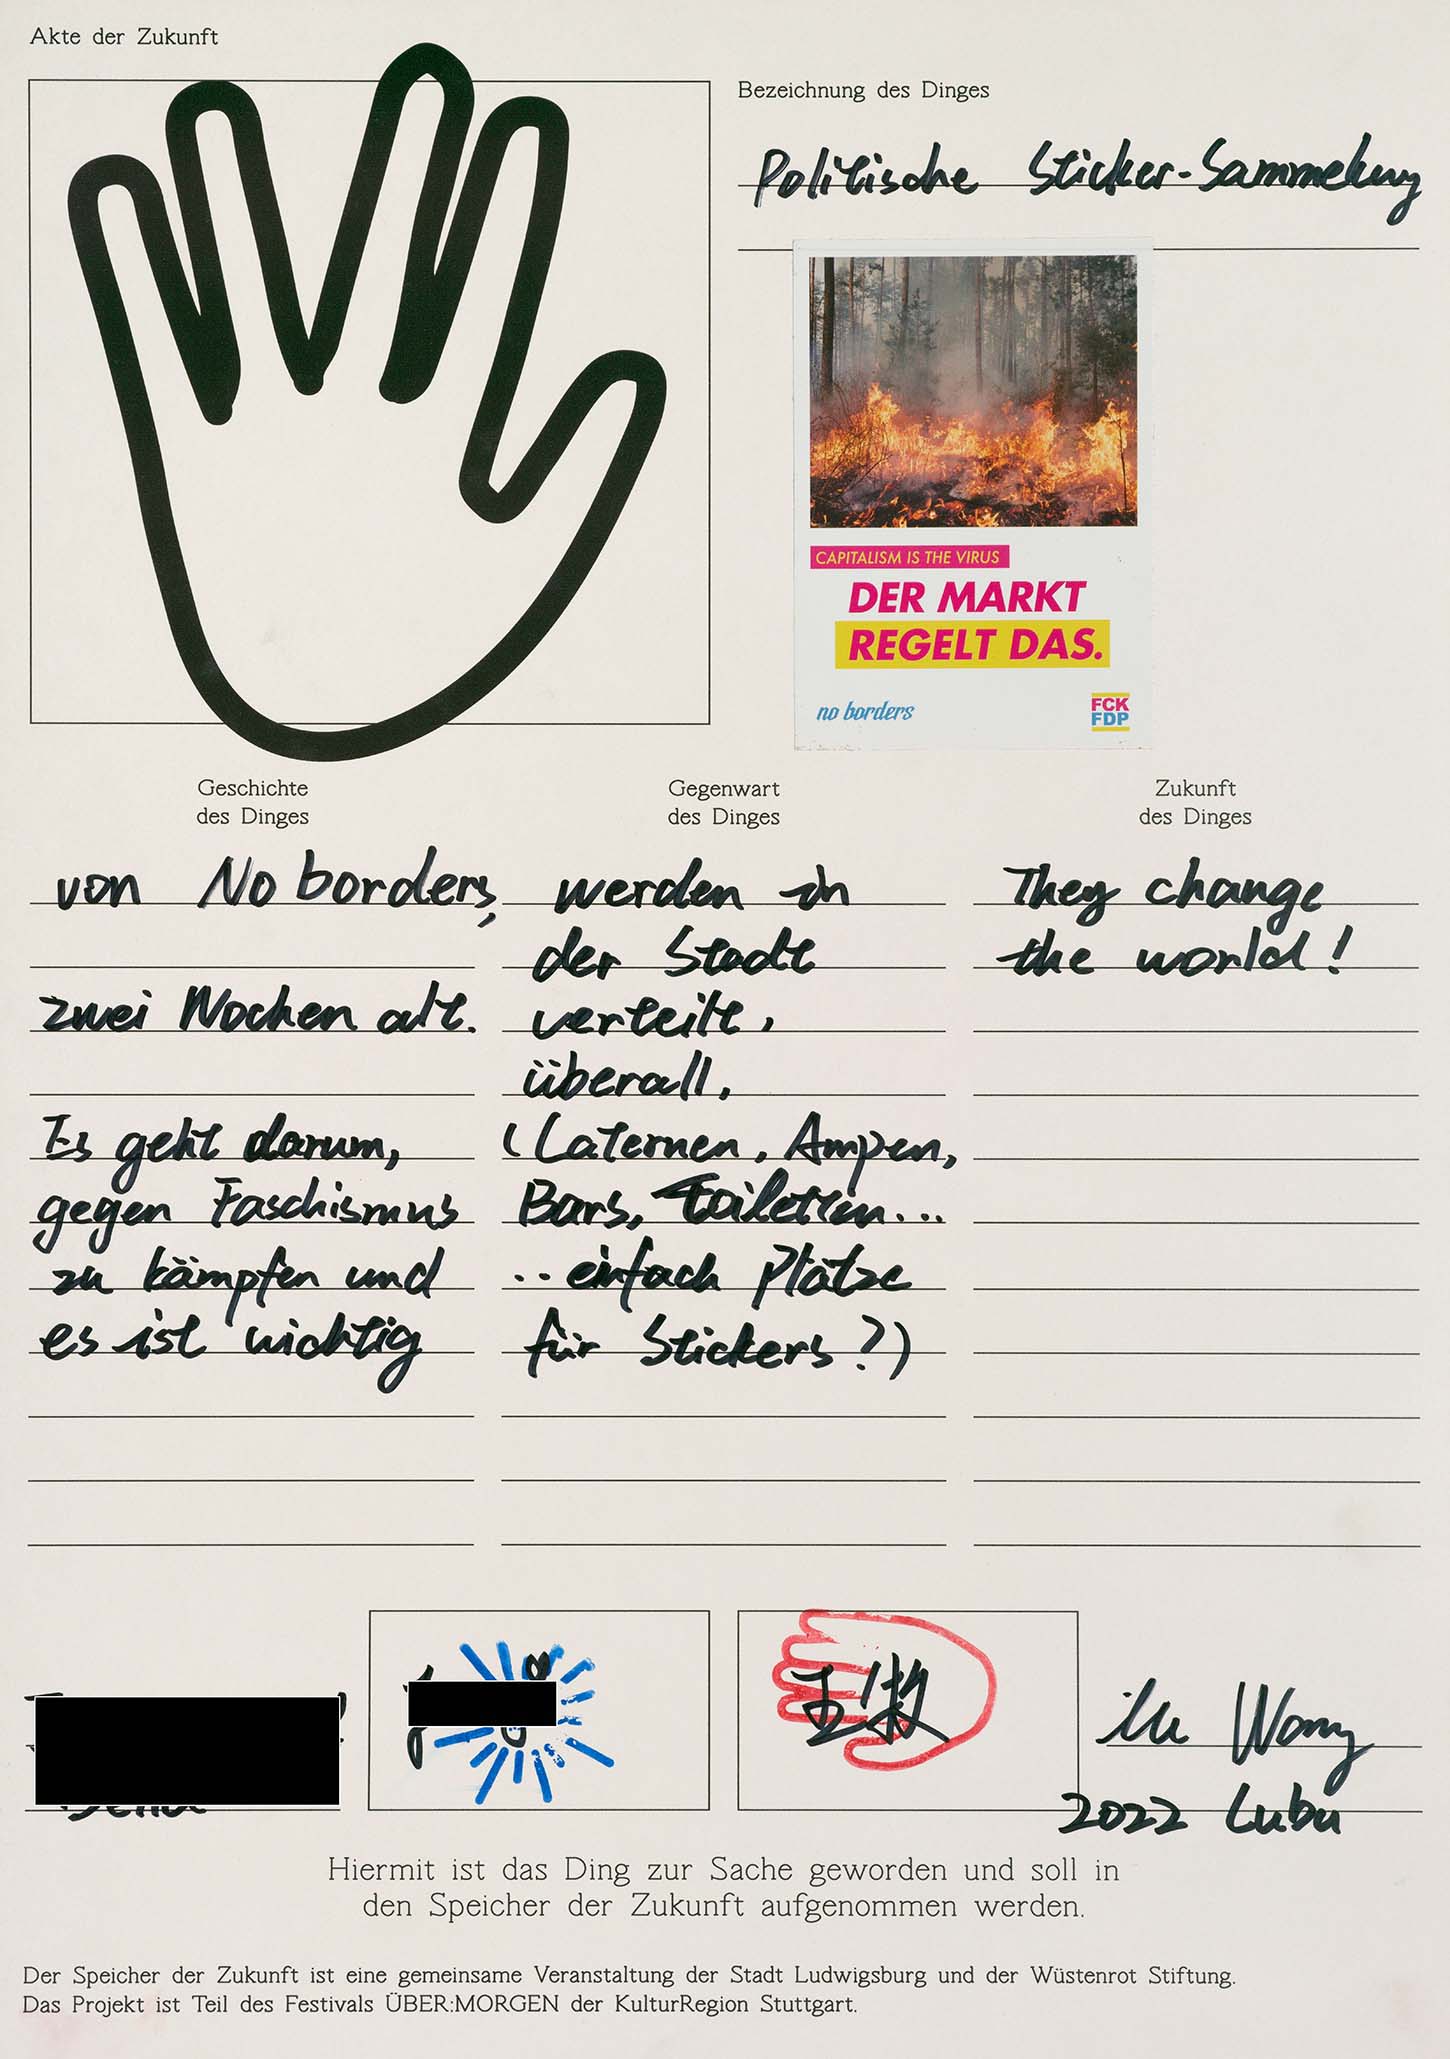 Akte der Zukunft
Bezeichnung des Dinges
Politische Sticker-Sammelung
CAPITALISM IS THE VIRUS
DER MARKT
REGELT DAS.
no borders
FCK
FDP
Geschichte
des Dinges
von No borders,
zwei Wochen alt.
Es geht darum,
gegen Faschismus
zu kämpfen und
es ist wichtig
Gegenwart
des Dinges
werden in
der Stadt
verteilt,
überall,
(Laternen, Ampen,
Bars, Toiletten...
.. einfach Plätze
für Stickers?)
Zukunft
des Dinges
They change
the world!
王牧
Wang
2022 Lubu
Hiermit ist das Ding zur Sache geworden und soll in
den Speicher der Zukunft aufgenommen werden.
Der Speicher der Zukunft ist eine gemeinsame Veranstaltung der Stadt Ludwigsburg und der Wüstenrot Stiftung.
Das Projekt ist Teil des Festivals ÜBER:MORGEN der KulturRegion Stuttgart.